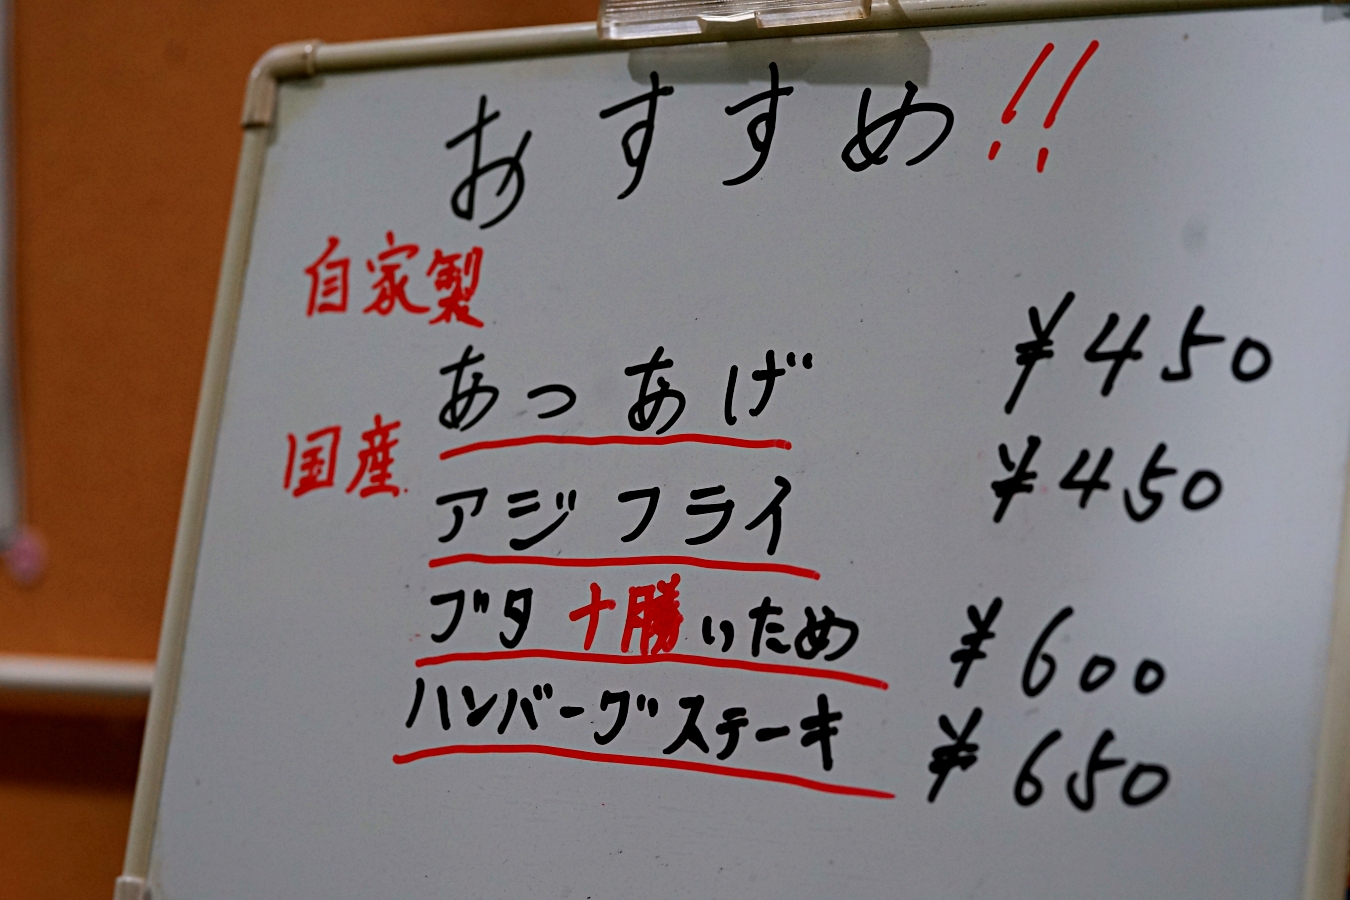 おすすめ!!
自家製
あつあげ ¥450
国産
アジフライ ¥450
ブタ十勝いため ¥600
ハンバーグステーキ ¥650